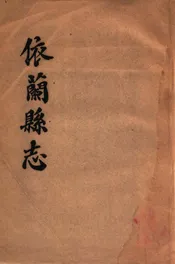 依蘭縣志